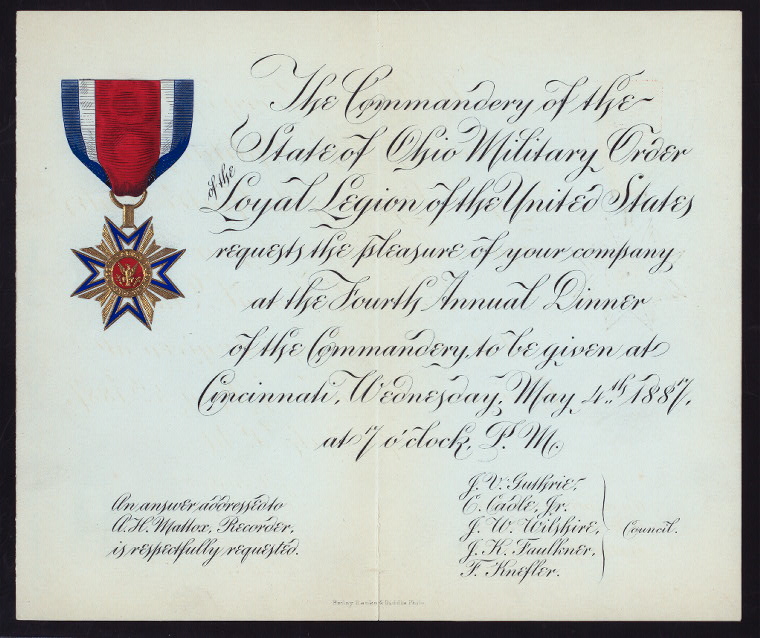 The Commandery of the
State of Ohio Military Order
of the
Loyal Legion of the United States
requests the pleasure of your company
at the Fourth Annual Dinner
of the Commandery, to be given at
Cincinnati, Wednesday, May 4th 1887,
at 7 o'clock, P. M.
An answer addressed to
A. H. Mattox, Recorder,
is respectfully requested.
J. V. Guthrie,
C. Cadle, Jr.
J. W. Wilshire,
J. K. Faulkner,
F. Knefler.
Council.
Banks & Biddle Phila.